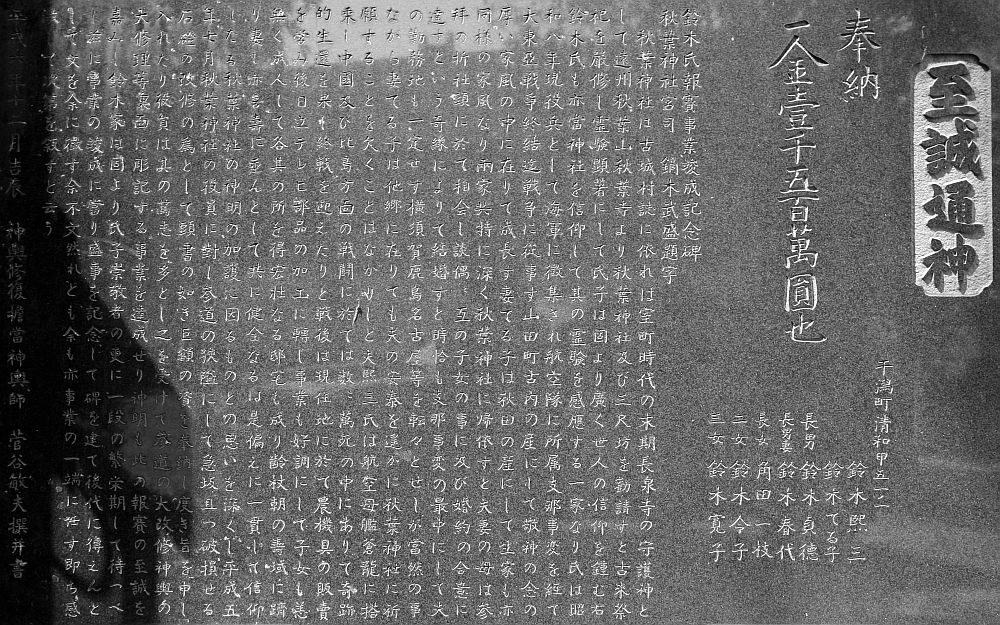 至誠通神
奉納
一金壹千五百萬圓也
干潟町清和甲五二一
鈴木熙三
鈴木てる子
長男 鈴木貞德
長男妻 鈴木春代
長女 角田一枝
二女 鈴木令子
三女 鈴木寛子
鈴木氏報賽事業竣成記念碑
秋葉神社宮司 鏑木武盛題字
秋葉神社は古城村誌に依れは室町時代の末期長泉寺の守護神と
して遠州秋葉山秋葉寺より秋葉神社及び三尺坊を勧請すと古来祭
祀を厳修し霊験顕著にして氏子は固より廣く世人の信仰を鍾む右
鈴木氏も亦當神社を信仰して其の霊験を感應する一家なり氏は昭
和八年現役兵として海軍に徴集され航空隊に所属支那事変を経て
大東亞戦争終結迄戦争に従事す山田町古内の産にして敬神の念の
厚い家風の中に在りて成長す妻てる子は秋田の産にして生家も亦
同様の家風なり両家共特に深く秋葉神社に帰依すと夫妻の母は参
拝の折社頭に於て相会し談偶〻互の子女の事に及び婚約の合意に
達すという奇縁によりて結婚すと時恰も支那事変の最中にして夫
の勤務地も一定せす横須賀鹿島名古屋等を転々とせしが當然の事
ながら妻てる子は他郷に在りても夫の安泰を遙かに秋葉神社に祈
願することを欠くことはなかりしと夫熙三氏は航空母艦蒼龍に搭
乗し中国及び比島方面の戦闘に於ては数〻萬死の中にありて奇跡
的生還を果し終戦を迎えたりと戦後は現住地に於て農機具の販賣
を営み後日立テレビ部品の加工に轉し事業も好調にして子女も恙
無く成人して各其の所を得宏壮なる邸宅も成り齢杖朝の壽域に躋
り妻も亦喜壽に垂んとして共に健全なるは是偏えに一貫して信仰
したる秋葉神社の神明の加護に因るものとの思いを深くし平成五
年七月秋葉神社の役員に對し参道の狭隘にして急坂且つ破損せる
石段の改修の為として頭書の如き巨額の浄財を奉納し度き旨を申し
入れたり役員は其の篤志を多とし之を受けて参道の大改修神輿の
大修理等墓面に彫記する事業を達成せり神明も此の報賽の至誠を
嘉みし鈴木家は固より氏子崇敬者の更に一段の繁栄期して待つべ
し茲に事業の竣成に当り盛事を記念して碑を建て後代に傳えんと
して文を余に徴す余不文然れとも余も亦事業の一端に與す即ち感
を以て次第を叙すと云う
平成六年十一月吉辰 神輿修復擔當神輿師 菅谷敏夫撰并書